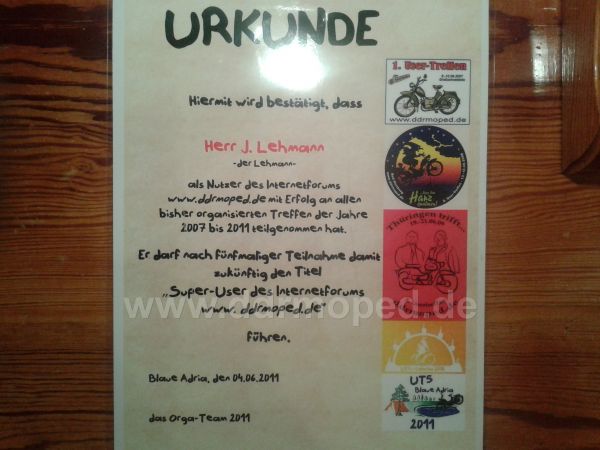 URKUNDE
Hiermit wird bestätigt, dass
Herr J. Lehmann
-der Lehmann-
als Nutzer des Internetforums
www.ddrmoped.de mit Erfolg an allen
bisher organisierten Treffen der Jahre
2007 bis 2011 teilgenommen hat.
Er darf nach fünfmaliger Teilnahme damit
zukünftig den Titel
„Super-User des Internetforums
www.ddrmoped.de"
führen.
Blaue Adria, den 04.06.2011
das Orga-Team 2011
1. User-Treffen
www.ddrmoped.de
Harz
Thüringen trifft...
UT5
Blaue Adria
2011
www.ddrmoped.de
www.ddrmoped.de